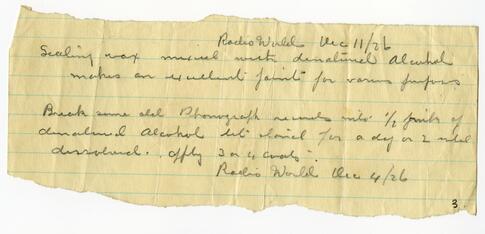 Radio World Dec 11/26
Sealing wax mixed with denatured Alcohol
makes an excellent paint for various purposes
Break some old Phonograph records into 1/2 pints of
denatured Alcohol let stand for a day or 2 until
dissolved. apply 3 or 4 coats.
Radio World Dec 4/26
3